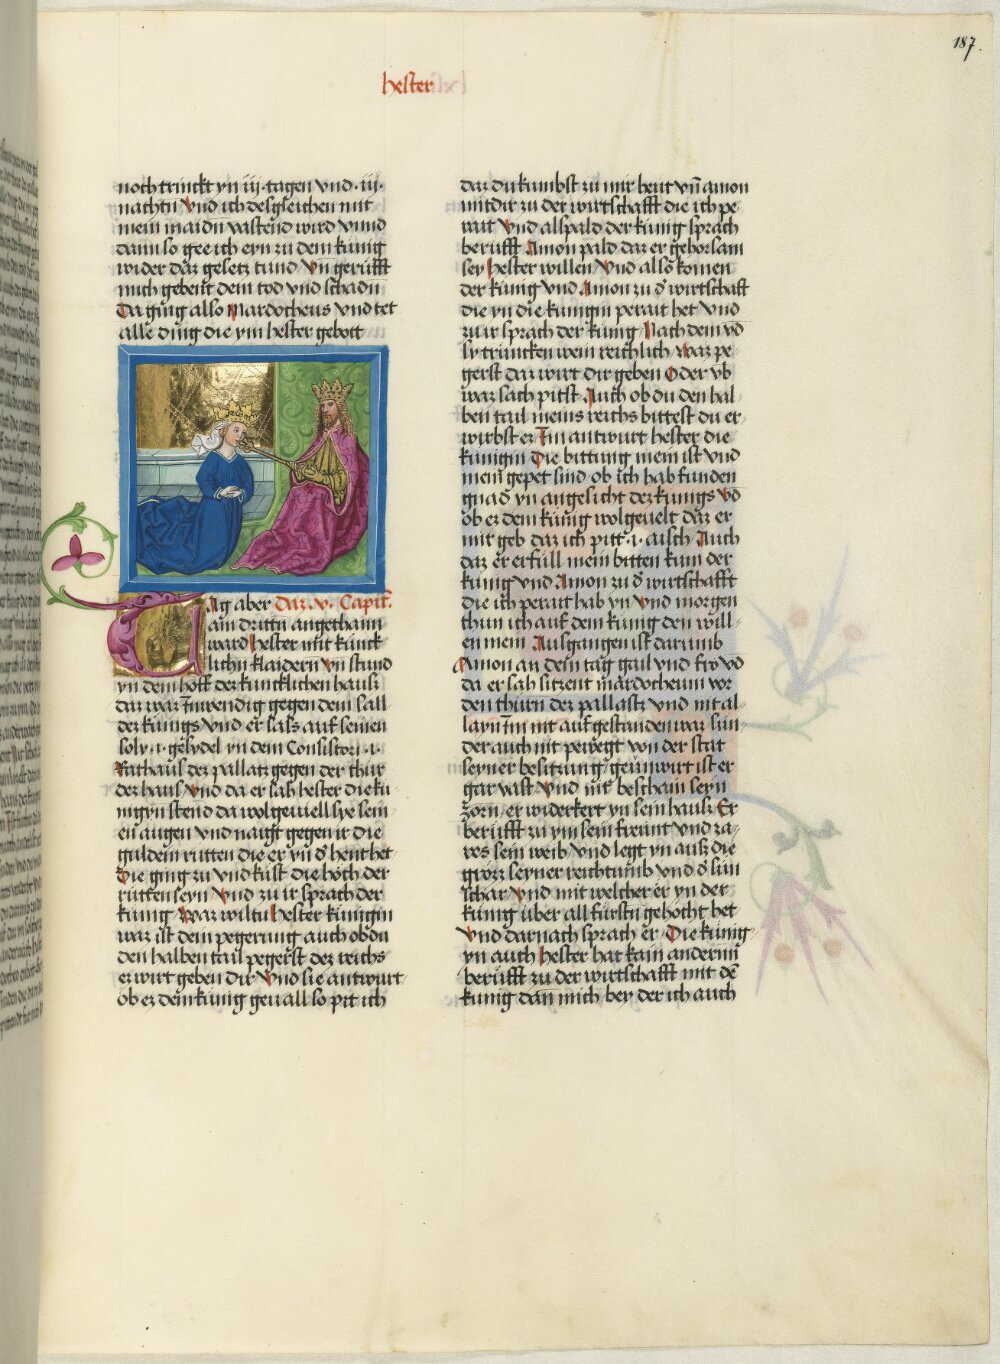 187.
hester
noch trinckt yn iij. tagen vnd .iij.
nachtn Vnd ich desgleichen mit
mein maidn vastend wird vnnd
dann so gee ich eyn zu dem kunig
wider daz gesetz tund Vn gerufft
mich gebent dem tod vnd schadn
Da ging also Mardocheus vnd tet
alle ding die ym hester gebott
Tag aber Daz .v. Capitl.
am drittn angethann
ward hester mit kunck
lichn klaidern Vn stund
yn dem hoff dez kuncklichen hausz
daz waz Inwendig gegen dem sall
dez kunigs vnd er sasz auf seinen
soly .i. gesydel yn dem Consistori .i.
Rathausz dez pallatz gegen der thur
dez hausz Vnd da er sah hester die ku
nigyn stend da wolgeviell sye sein
en augen vnd naigt gegen ir die
guldein rutten die er yn d' hent het
Die ging zu vnd kust die hoch der
rutten seyn Vnd zu ir sprach der
kunig Waz wiltu hester kunigin
waz ist dein pegerung auch ob du
den halben tail pegerst dez reichs
er wirt geben dir Vnd sie antwurt
ob ez dem kunig gevall so pit ich
daz du kumbst zu mir heut vn amon
mit dir zu der wirtschafft die ich pe
rait Vnd alspald der kunig sprach
berufft Amon pald daz er gehorsam
sey hester willen Vnd also komen
der kunig vnd Amon zu d' wirtschaft
die yn die kunigin perait het vnd
zu ir sprach der kunig Nach dem vd
sy truncken wein reichlich Waz pe
gerst daz wirt dir geben Oder vb
waz sach pitst Auch ob du den hal
ben tail meins reichs bittest du er
wirbst ez Im antwurt hester die
kunigin Die bittung mein ist vnd
mein gepet sind ob ich hab funden
gnad yn angesicht dez kunigs Vd
ob ez dem kunig wolgevelt daz er
mir geb daz ich pitt .i. aisch Auch
daz er erfull mein bitten kum der
kunig vnd Amon zu d' wirtschafft
die ich perait hab yn Vnd morgen
thun ich auf dem kunig den will
en mein Ausgangen ist darumb
Amon an dem tag gail vnd fro vd
da er sah sitzent mardocheum vor
den thurn dez pallastz vnd nit al
layn Im nit aufgestanden waz sun
der auch nit pewegt von der stat
seyner besitzung geunwirt ist er
gar vast Vnd mit bescham seyn
zorn er widerkert yn sein hausz Er
berufft zu ym sein freunt vnd za
res sein weib vnd legt yn ausz die
grosz seyner reichtumb vnd d' sun
schar Vnd mit welcher er yn der
kunig uber all furstn gehocht het
Vnd darnach sprach er Die kunig
yn auch hester hat kain andernn
berufft zu der wirtschafft mit de
kunig dan mich bey der ich auch